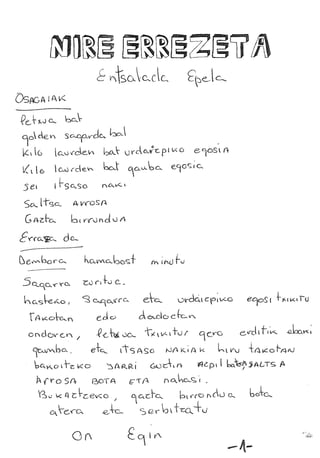 NIRE ERREZETA
Entsalada Epela
OSAGAIAK
Letxua bat
golden sagarda bat
Kilo laurden bat urdaiepiko egosia
Kilo laurden bat ganba egosia
sei itsaso naki
Saltsa ARROSA
Gazta birrundua
Erraza da
Dembora hamabost minutu
Sagarra zuritua.
hasteko, Sagarra eta urdaiepiko egosi txikitu
TAKOTAN edo dadoetan
ondoren, letxua txikitu gero erditik ebani
gamba. eta ITSASO NAKIAK hiru TAKOTAN
bakoiteko JARRI guztin AZPIL batean SALTSA
ARROSA BOTA ETA nahasi.
BUKATZEKO, gazta birrondua bota
atera eta serbitzatu
On Egin
-1-